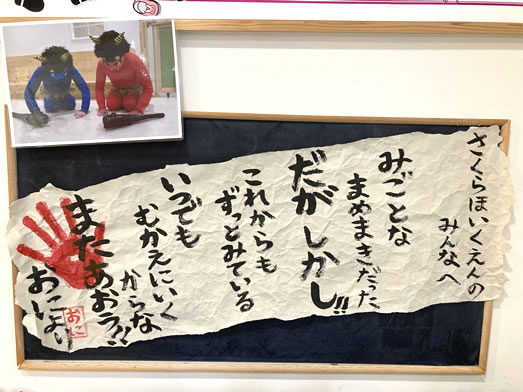 さくらほいくえんの
みんなへ
みごとな
まめまきだった
だがしかし!!
これからも
ずっとみている
いつでも
むかえにいく
からな
またあおう!!
おにより
おに